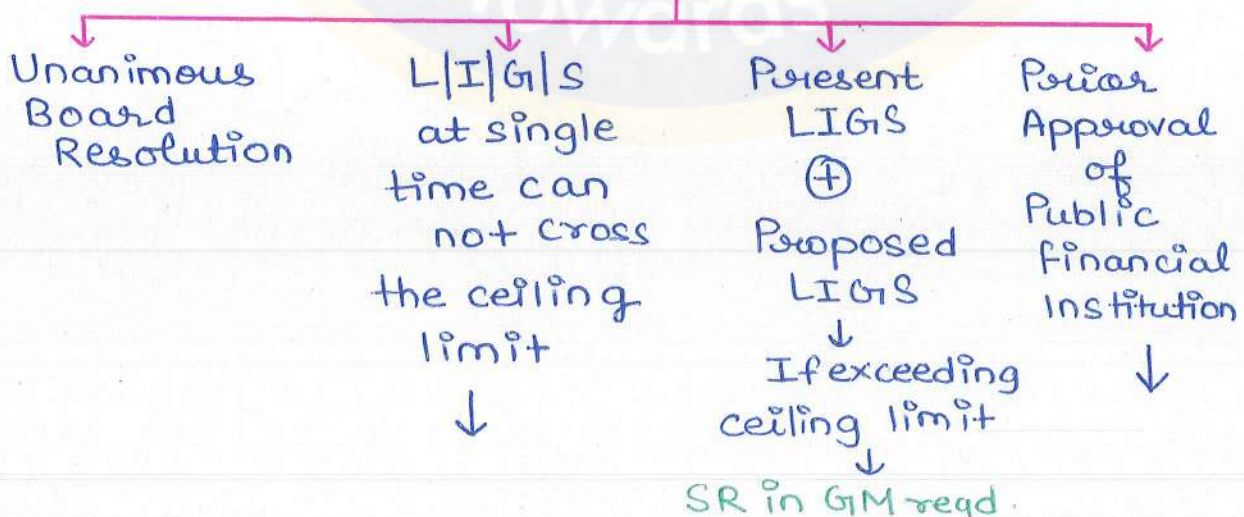 towards
Unanimous
Board
Resolution
L|I|G|S
at single
time can
not cross
the ceiling
limit
Present
LIGS
+
Proposed
LIGS
If exceeding
ceiling limit
SR in GM reqd.
Prior
Approval
of
Public
financial
Institution